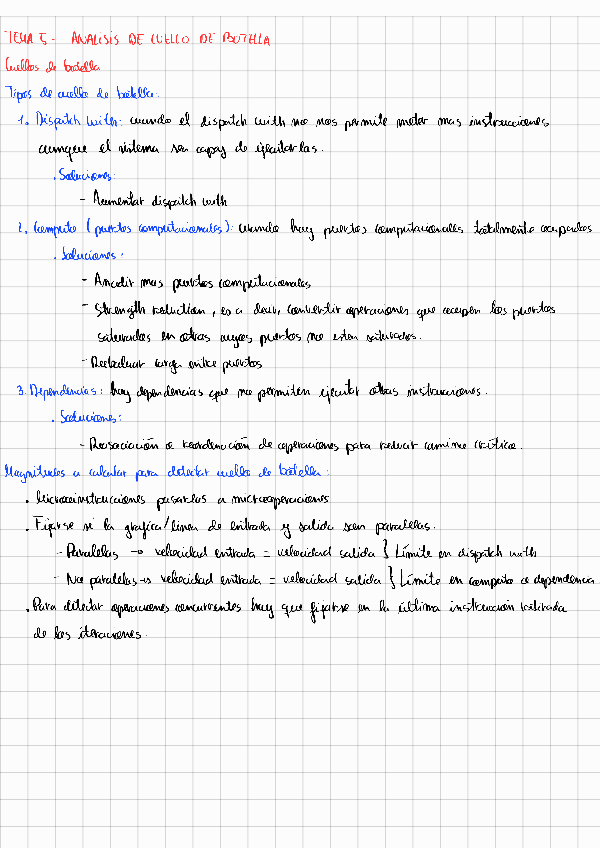 TEMA 5 - ANALISIS DE CUELLO DE BOTELLA
Cuellos de botella
Tipos de cuello de botella:
1. Dispatch with: cuando el dispatch with no nos permite meter mas instrucciones
aunque el sistema sea capaz de ejecutarlas.
. Soluciones:
- Aumentar dispatch with
2. Computo (puertos computacionales): cuando hay puertos computacionales totalmente ocupados
. Soluciones:
- Anadir mas puertos computacionales
- Strength reduction, es a decir, convertir operaciones que ocupen los puertos
saturados en otras cuyos puertos no estan saturados.
- Rebalancear carga entre puertos
3. Dependencias: hay dependencias que no permiten ejecutar otras instrucciones.
. Soluciones:
- Reasociación o reordenación de operaciones para reducir camino critico.
Magnitudes a calcular para detectar cuello de botella:
. Microinstrucciones pasarlas a microoperaciones
. Fijarse si la grafica/linea de entrada y salida son paralelas.
- Paralelas → velocidad entrada = velocidad salida } Límite en dispatch with
- No paralelas → velocidad entrada = velocidad salida } Límite en computo o dependencia
. Para detectar operaciones concurrentes hay que fijarse en la última instrucción
de las iteraciones.